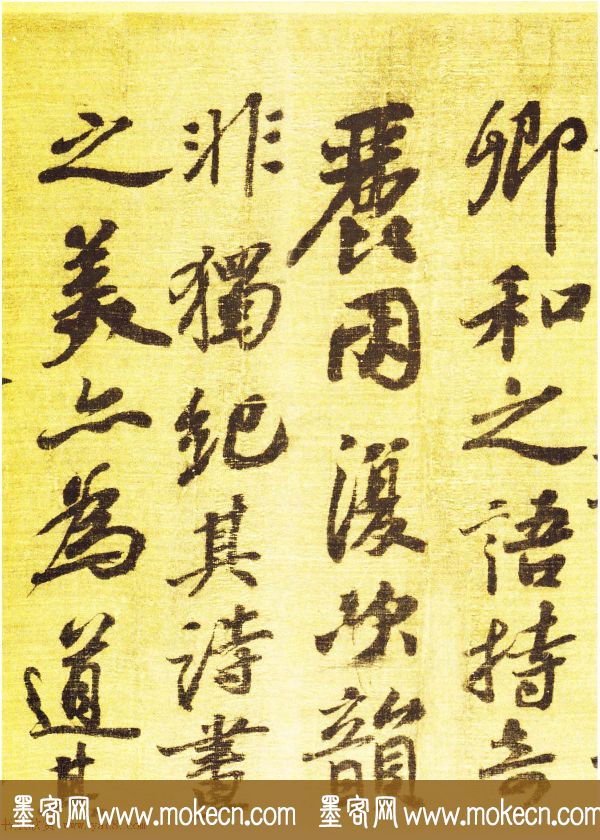 卿和之語特奇
麗因復次韻
非獨紀其詩畫
之美亦為道其
墨客网 www.mokecn.com 墨客网 www.mokecn.com